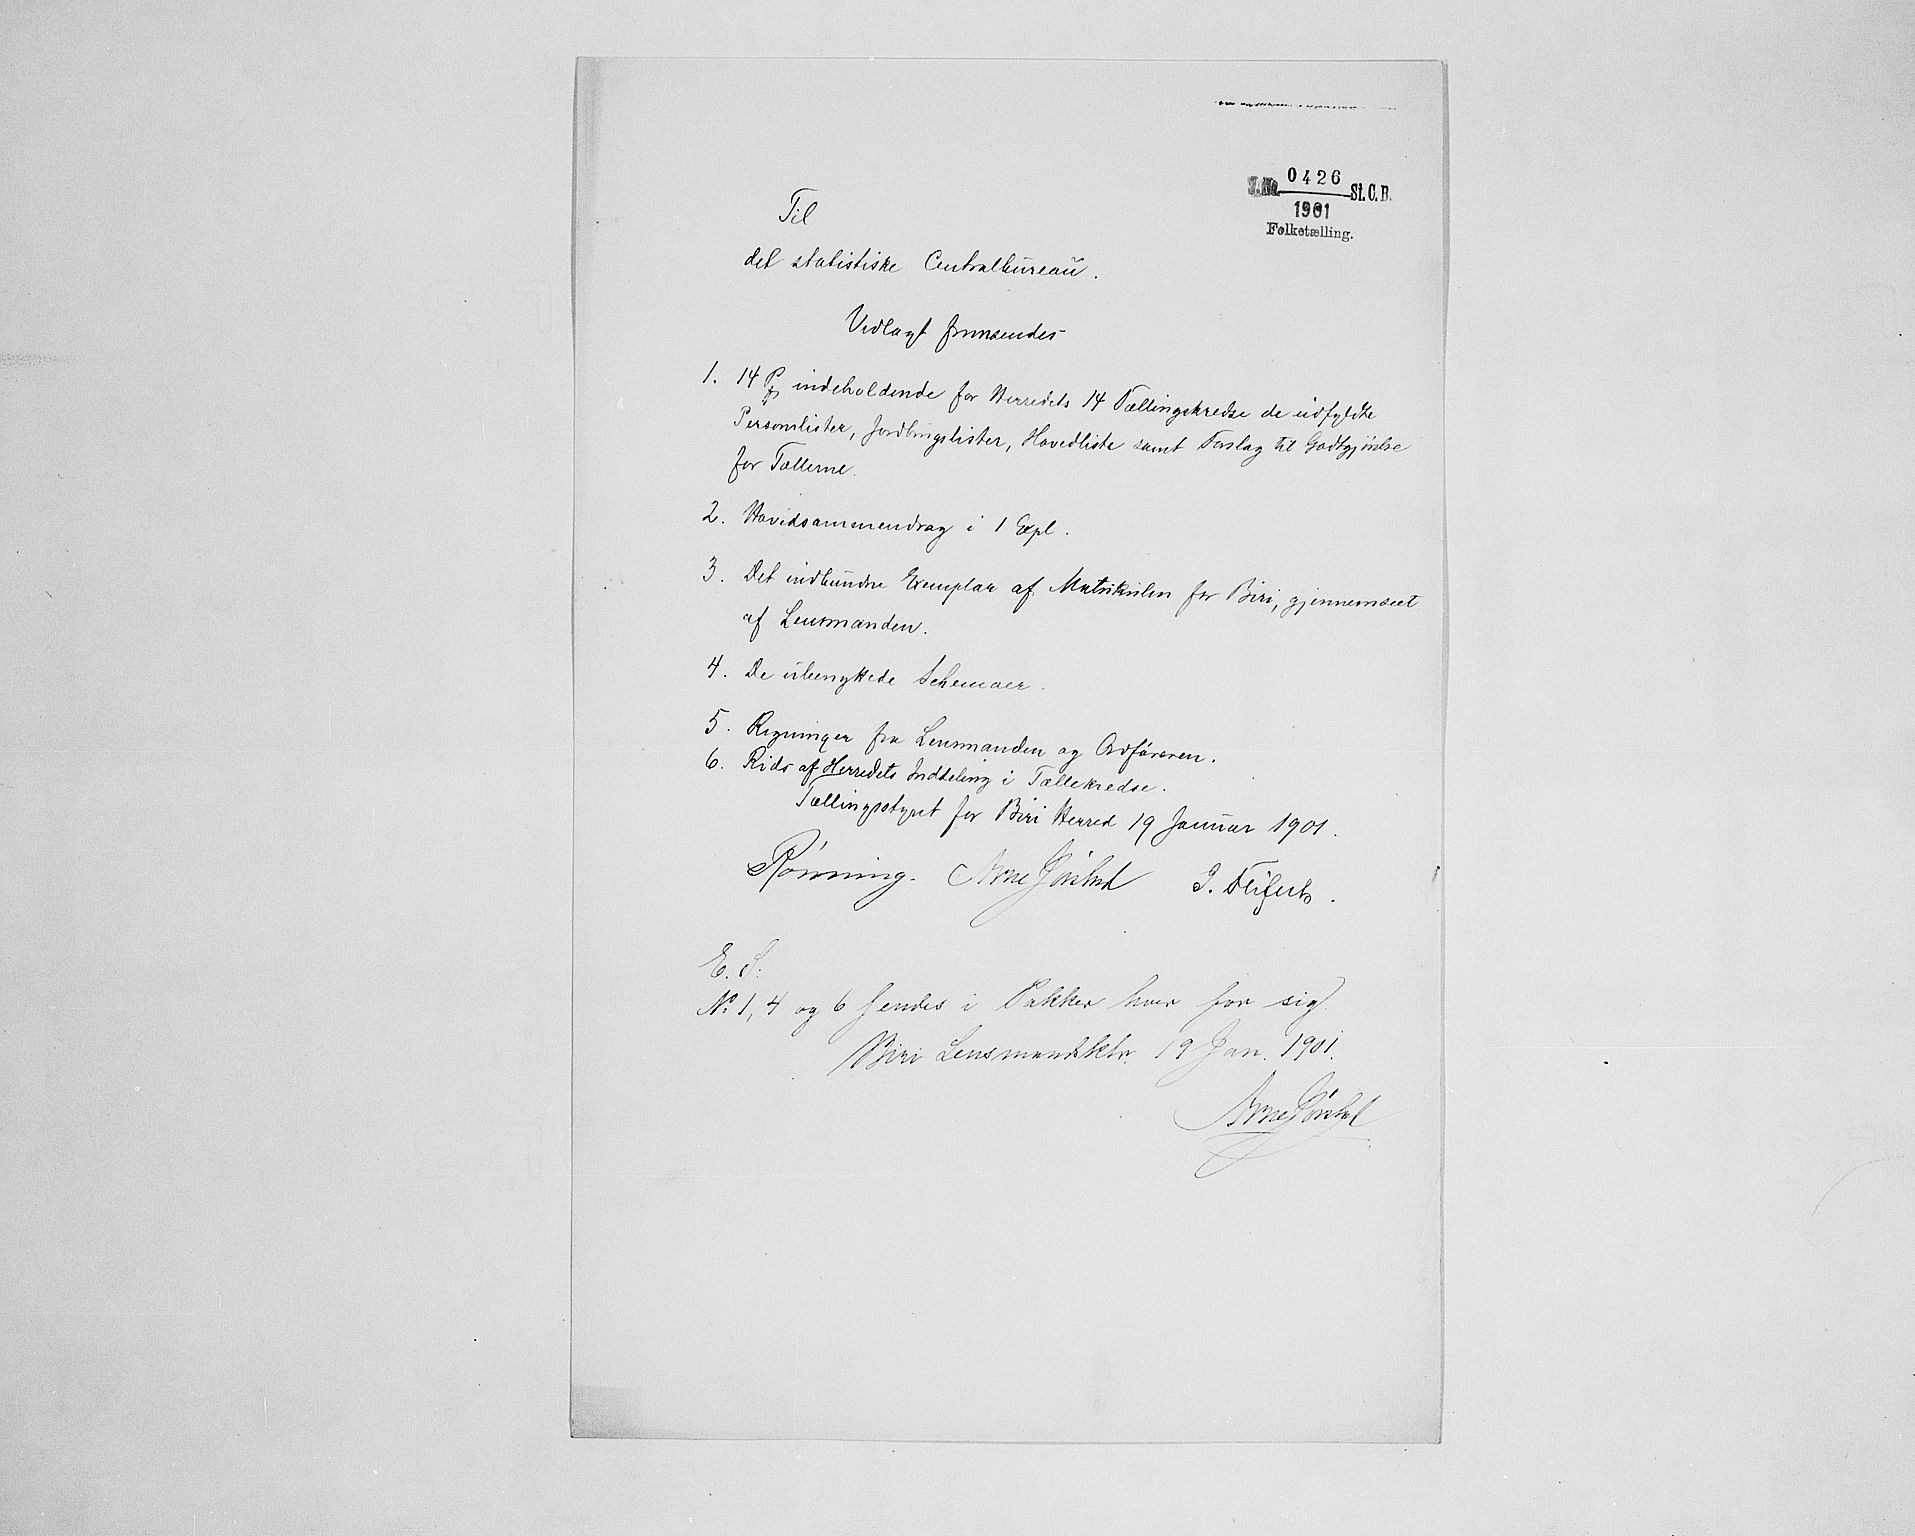 J.No. 0426 St. C. B.
1901
Folketælling.
Til
det statistiske Centralbureau.
Vedlagt fremsendes
1. 14 indeholdende for Herredets 14 Tællingskredse de udfyldte
Personlister, Jordbrugslister, Hovedliste samt Forslag til Godtgjörelse
for Tællerne.
2. Hovedsammendrag i 1 Expl.
3. Det indbundne Exemplar af Matrikulen for Biri, gjennemseet
af Lensmanden.
4. De ubenyttede Schemaer.
5. Regninger fra Lensmanden og Ordföreren.
6. Rids af Herredets Inddeling i Tællekredse.
Tællingsstyret for Biri Herred 19 Januar 1901.
Rönning. Arne
E. S.
No 1, 4 og 6 sendes i Pakker hver for sig.
Biri Lensmandsktr. 19 Jan. 1901.
Arne